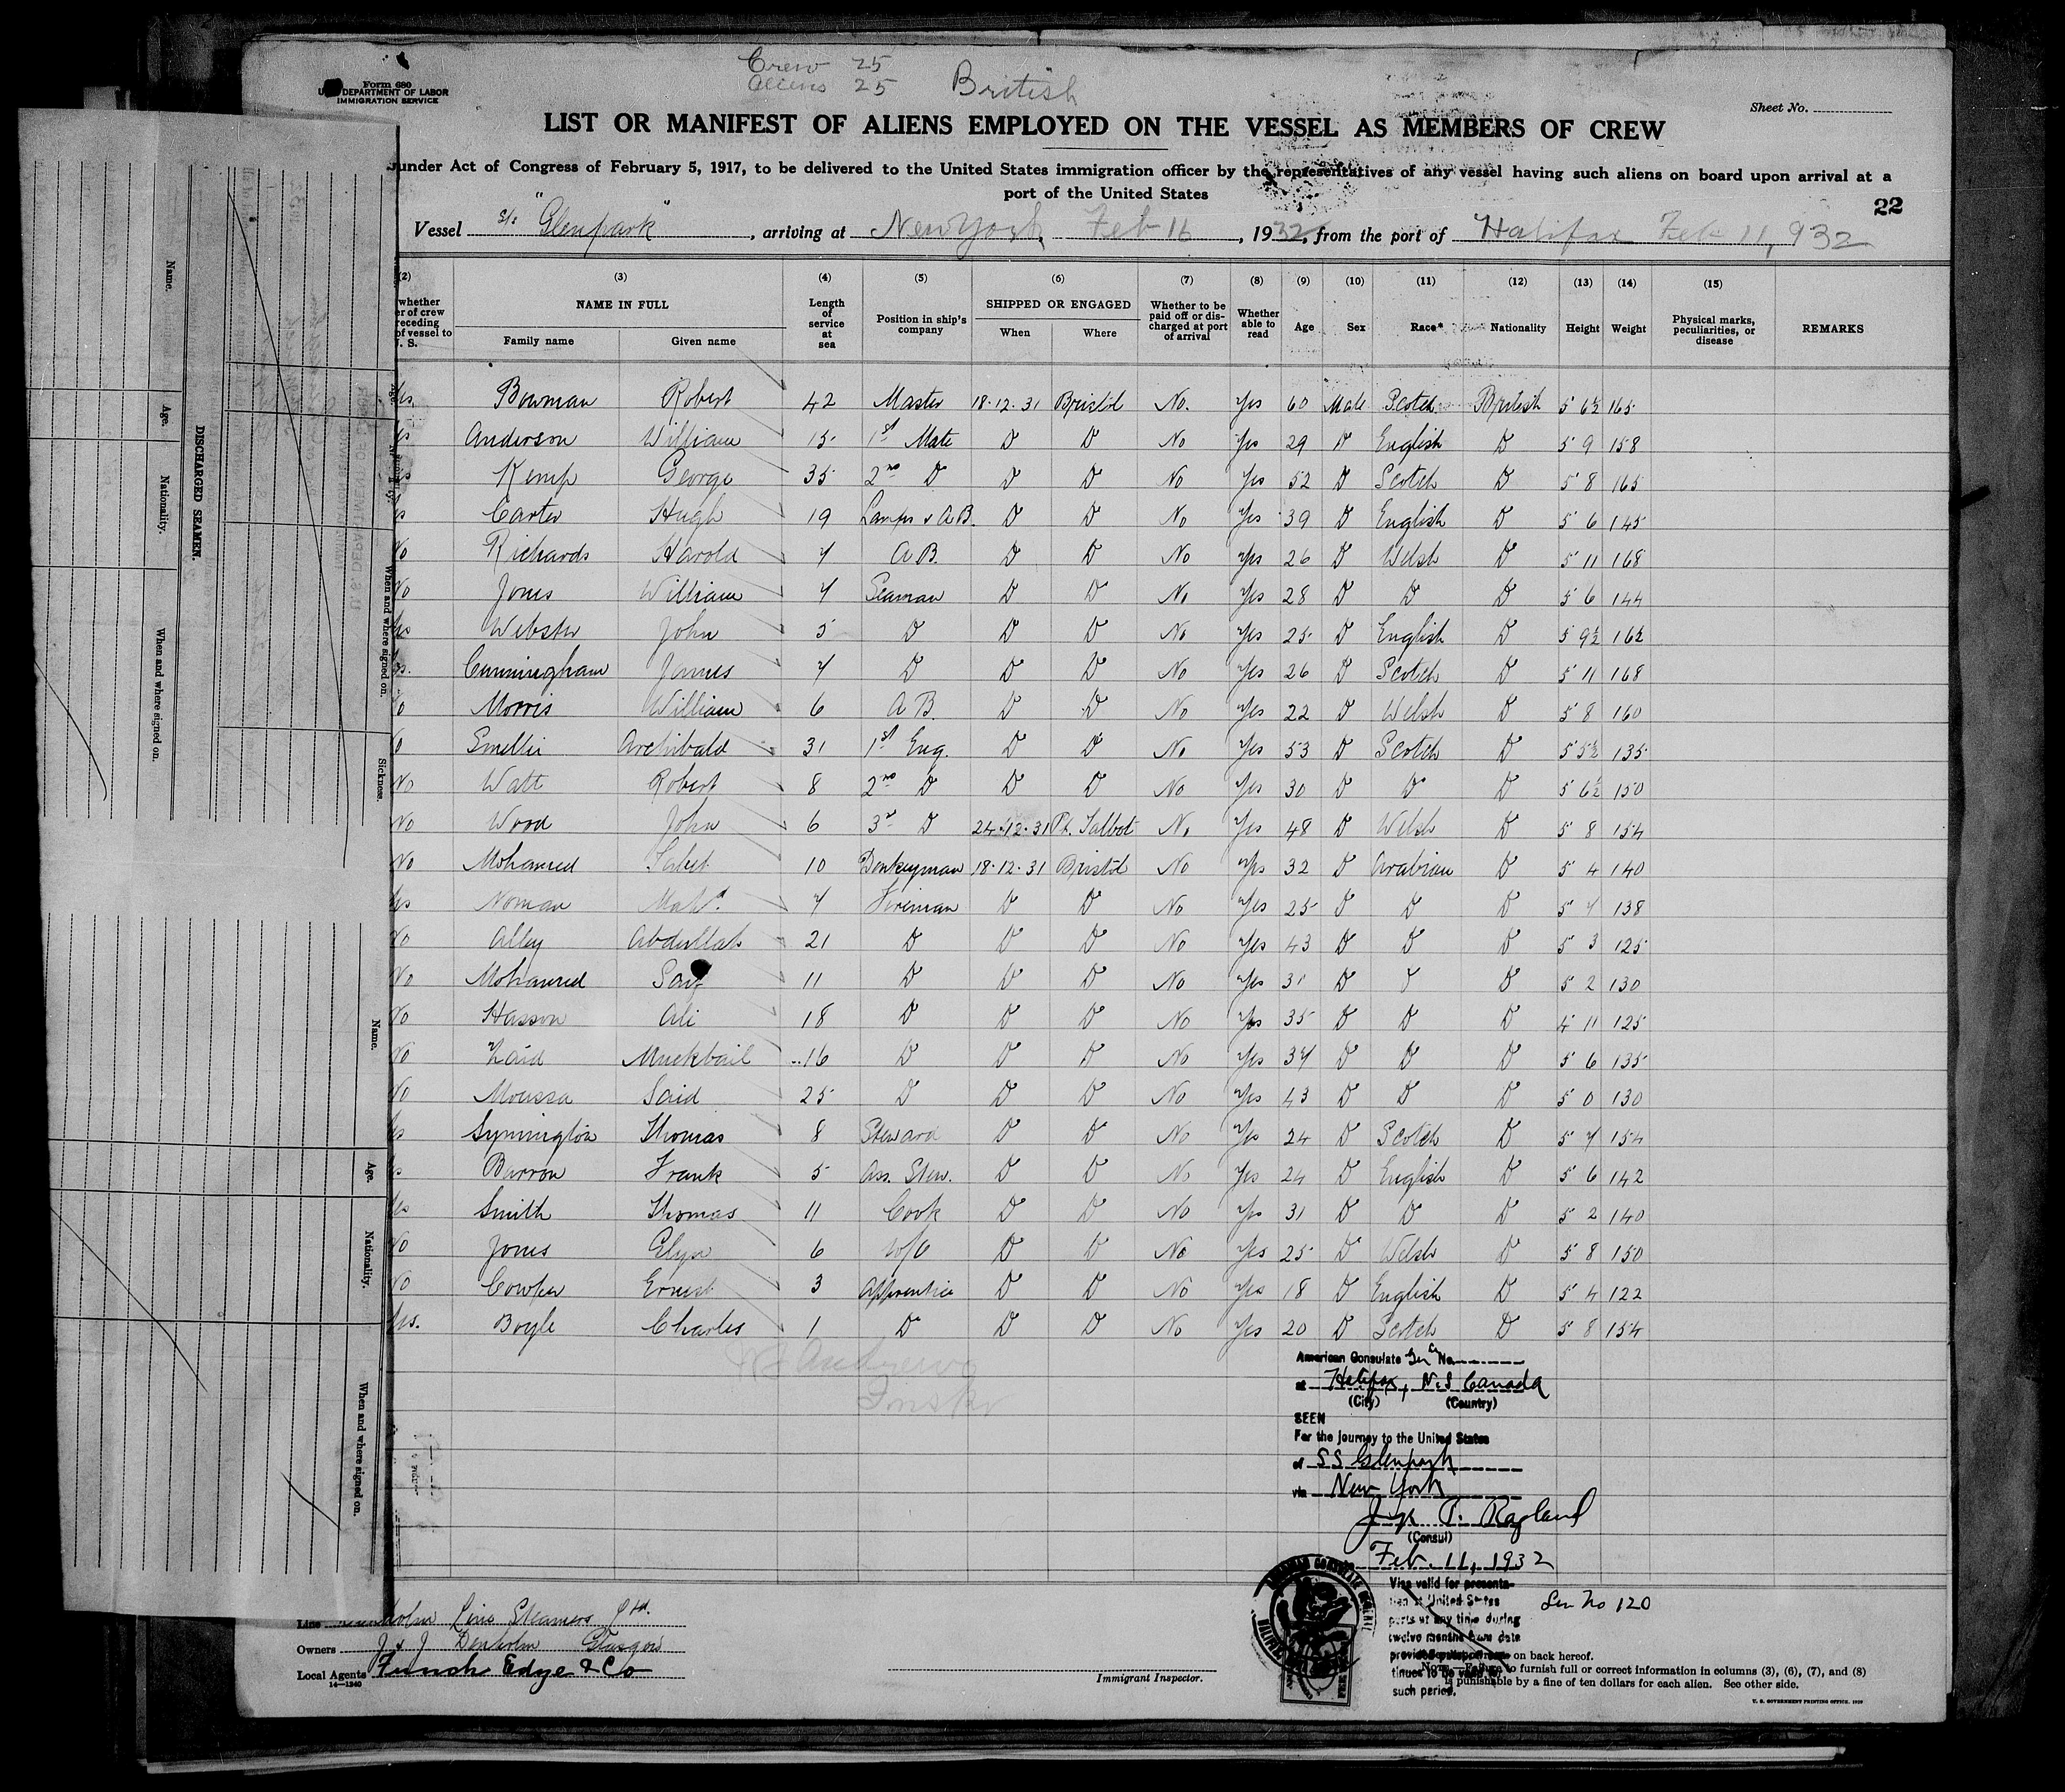 Crew 25
Aliens 25 British
Form 680
U. S. DEPARTMENT OF LABOR
IMMIGRATION SERVICE
Sheet No.
LIST OR MANIFEST OF ALIENS EMPLOYED ON THE VESSEL AS MEMBERS OF CREW
under Act of Congress of February 5, 1917, to be delivered to the United States immigration officer by the representatives of any vessel having such aliens on board upon arrival at a
port of the United States
22
Vessel s/s "Glenpark", arriving at New York, Feb 16, 1932, from the port of Halifax Feb 11, 932
(2) (3) (4) (5) (6) (7) (8) (9) (10) (11) (12) (13) (14) (15)
whether
er of crew
receding
of vessel to
U. S.
NAME IN FULL
Family name Given name
Length of service at sea
Position in ship's company
SHIPPED OR ENGAGED
When Where
Whether to be paid off or discharged at port of arrival
Whether able to read
Age Sex Race* Nationality Height Weight
Physical marks, peculiarities, or disease
REMARKS
Yes Bowman Robert 42 Master 18.12.31 Bristol No. Yes 60 Male Scotch British 5 6½ 165
Yes Anderson William 15 1st Mate D D No Yes 29 D English D 5 9 158
Yes Kemp George 35 2nd D D D No Yes 52 D Scotch D 5 8 165
Yes Carter Hugh 19 Lamps & A B. D D No Yes 39 D English D 5 6 145
No Richards Harold 7 A B. D D No Yes 26 D Welsh D 5 11 168
No Jones William 7 Seaman D D No Yes 28 D D D 5 6 144
Yes Webster John 5 D D D No Yes 25 D English D 5 9½ 162
Yes. Cunningham James 7 D D D No Yes 26 D Scotch D 5 11 168
No Morris William 6 A B. D D No Yes 22 D Welsh D 5 8 160
No Smellie Archibald 31 1st Eng. D D No Yes 53 D Scotch D 5 5½ 135
No Watt Robert 8 2nd D D D No Yes 30 D D D 5 6½ 150
No Wood John 6 3rd D 24.12.31 Pt. Talbot No Yes 48 D Welsh D 5 8 154
No Mohamed 10 Donkeyman 18.12.31 Bristol No Yes 32 D Arabian D 5 4 140
Yes Noman Mohd. 7 Fireman D D No Yes 25 D D D 5 7 138
No Alley Abdullah 21 D D D No Yes 43 D D D 5 3 125
No Mohamed Saif 11 D D D No Yes 31 D D D 5 2 130
No Hasson Ali 18 D D D No Yes 35 D D D 4 11 125
No Zaid Muckbail 16 D D D No Yes 37 D D D 5 6 135
No Moussa Said 25 D D D No Yes 43 D D D 5 0 130
Yes Symington Thomas 8 Steward D D No Yes 24 D Scotch D 5 7 154
Yes Barron Frank 5 Ass. Stew. D D No Yes 24 D English D 5 6 142
Yes Smith Thomas 11 Cook D D No Yes 31 D D D 5 2 140
No Jones Glyn 6 W/O D D No Yes 25 D Welsh D 5 8 150
No Cowper Ernest 3 Apprentice D D No Yes 18 D English D 5 4 122
Yes. Boyle Charles 1 D D D No Yes 20 D Scotch D 5 8 154
American Consulate Gen'l No.
at Halifax, N.S Canada
(City) (Country)
SEEN
For the journey to the United States
of SS Glenpark
via New York
P. Ragland
(Consul)
Feb. 11, 1932
Visa valid for presenta-
tion at United States
ports at any time during
twelve months from date
provided
tinues to be valid for
such period.
Ser No 120
Line Denholm Line Steamers Ltd.
Owners J & J Denholm Glasgow
Local Agents Funch Edye & Co
14—1240
Immigrant Inspector.
on back hereof.
NOTE.—Failure to furnish full or correct information in columns (3), (6), (7), and (8)
is punishable by a fine of ten dollars for each alien. See other side.
U. S. GOVERNMENT PRINTING OFFICE. 1929
DISCHARGED SEAMEN.
Name. Age. Nationality. When and where signed on.
When and where signed on. Sickness.
Name. Age. Nationality. When and where signed on.